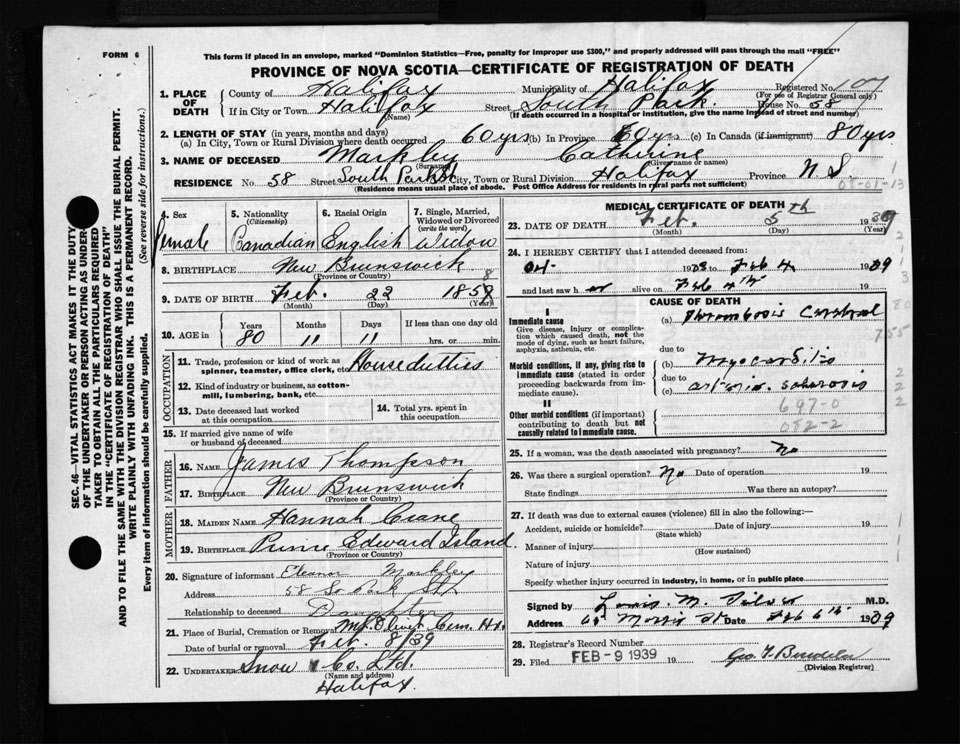 FORM 6
This form if placed in an envelope, marked "Dominion Statistics—Free, penalty for improper use $300," and properly addressed will pass through the mail "FREE"
PROVINCE OF NOVA SCOTIA—CERTIFICATE OF REGISTRATION OF DEATH
1. PLACE OF DEATH
County of Halifax Municipality of Halifax Registered No. 107
(For use of Registrar General only)
If in City or Town Halifax Street South Park House No. 58
(Name) (If death occurred in a hospital or institution, give the name instead of street and number)
2. LENGTH OF STAY (in years, months and days)
(a) In City, Town or Rural Division where death occurred 60 yrs (b) In Province 60 yrs (c) In Canada (if immigrant) 80 yrs
3. NAME OF DECEASED Markley Catherine
(Surname) (Given name or names)
RESIDENCE No. 58 Street South Park St City, Town or Rural Division Halifax Province N S.
(Residence means usual place of abode. Post Office Address for residents in rural parts not sufficient)
08-01-13
4. Sex Female
5. Nationality (Citizenship) Canadian
6. Racial Origin English
7. Single, Married, Widowed or Divorced (write the word) Widow
8. BIRTHPLACE New Brunswick
(Province or Country)
9. DATE OF BIRTH Feb. 22 1858
(Month) (Day) (Year)
10. AGE in Years 80 Months 11 Days 11 If less than one day old hrs. or min.
OCCUPATION
11. Trade, profession or kind of work as spinner, teamster, office clerk, etc. House duties
12. Kind of industry or business, as cotton-mill, lumbering, bank, etc.
13. Date deceased last worked at this occupation
14. Total yrs. spent in this occupation
15. If married give name of wife or husband of deceased
FATHER
16. NAME James Thompson
17. BIRTHPLACE New Brunswick
(Province or Country)
MOTHER
18. MAIDEN NAME Hannah Crane
19. BIRTHPLACE Prince Edward Island.
(Province or Country)
20. Signature of informant Eleanor Markley
Address 58 So Park St
Relationship to deceased Daughter
21. Place of Burial, Cremation or Removal Mt. Olivet Cem. Hx.
Date of burial or removal Feb. 8/39
22. UNDERTAKER Snow & Co. Ltd.
(Name and address)
Halifax.
MEDICAL CERTIFICATE OF DEATH
23. DATE OF DEATH Feb. 5th 1939
(Month) (Day) (Year)
24. I HEREBY CERTIFY that I attended deceased from
Oct 1938 to Feb 4 1939
and last saw her alive on Feb 4th
CAUSE OF DEATH
I
Immediate cause
Give disease, injury or complication which caused death, not the mode of dying, such as heart failure, asphyxia, asthenia, etc.
(a) Thrombosis Cerebral
due to
Morbid conditions, if any, giving rise to immediate cause (stated in order proceeding backwards from immediate cause).
(b) Myocarditis
due to
(c) arterio sclerosis
II
Other morbid conditions (if important) contributing to death but not causally related to immediate cause.
697-0
082-2
25. If a woman, was the death associated with pregnancy? No
26. Was there a surgical operation? No Date of operation 19
State findings Was there an autopsy?
27. If death was due to external causes (violence) fill in also the following:—
Accident, suicide or homicide? Date of injury 19
(State which)
Manner of injury
(How sustained)
Nature of injury
Specify whether injury occurred in industry, in home, or in public place
Signed by Louis M. Silver M.D.
Address 65 Morris St Date Feb 6th 1939
28. Registrar's Record Number
29. Filed FEB - 9 1939 19
(Division Registrar)
SEC. 46—VITAL STATISTICS ACT MAKES IT THE DUTY
OF THE UNDERTAKER OR PERSON ACTING AS UNDERTAKER TO OBTAIN ALL THE PARTICULARS REQUIRED
IN THE "CERTIFICATE OF REGISTRATION OF DEATH"
AND TO FILE THE SAME WITH THE DIVISION REGISTRAR WHO SHALL ISSUE THE BURIAL PERMIT.
WRITE PLAINLY WITH UNFADING INK. THIS IS A PERMANENT RECORD.
Every item of information should be carefully supplied. (See reverse side for instructions.)